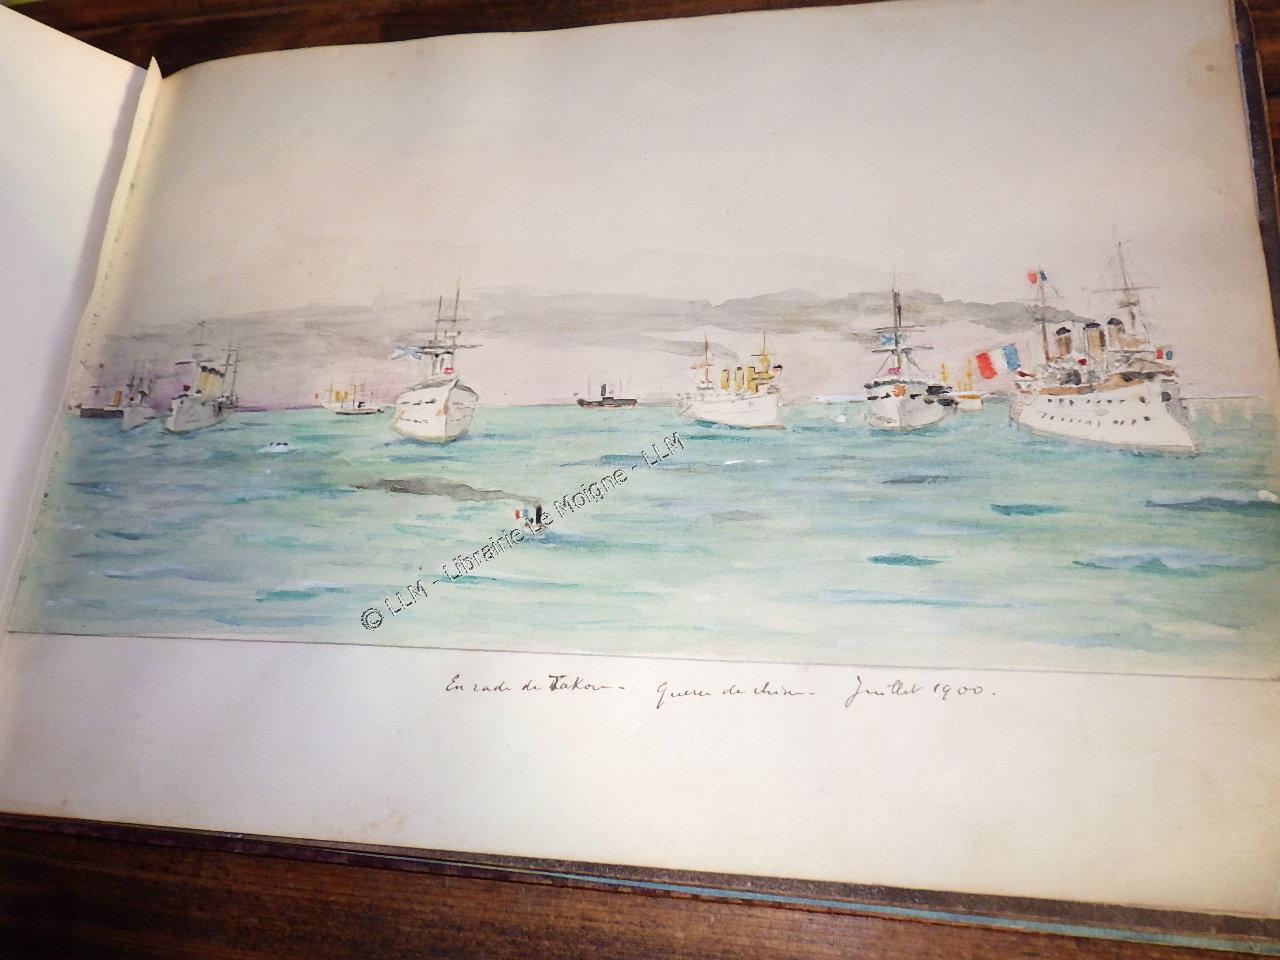 © LLM - Librairie Le Moigne - LLM
En rade de Takou - guerre de chine - Juillet 1900.